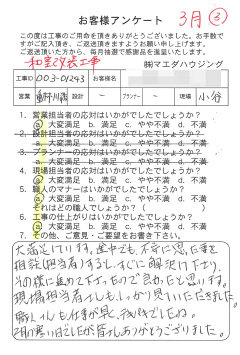 お客様アンケート 3月 ③
この度は工事のご用命を頂きありがとうございました。お手数で
すがご記入頂き、ご返送頂きますようお願い申し上げます。
ご返送頂いた方から、毎月抽選で感謝品を進呈いたします。
和室改装工事 ㈱マエダハウジング
工事ID 003-01243 お客様名
営業 設計 ー プランナー ー 現場 小谷
1. 営業担当者の応対はいかがでしたでしょうか？
a. 大満足 b. 満足 c. やや不満 d. 不満
2. 設計担当者の応対はいかがでしたでしょうか？
a. 大満足 b. 満足 c. やや不満 d. 不満
3. プランナーの応対はいかがでしたでしょうか？
a. 大満足 b. 満足 c. やや不満 d. 不満
4. 現場担当者の応対はいかがでしたでしょうか？
a. 大満足 b. 満足 c. やや不満 d. 不満
5. 職人のマナーはいかがでしたでしょうか？
a. 大満足 b. 満足 c. やや不満 d. 不満
それはどの職人でしょう（ ）
6. 工事の仕上がりはいかがでしたでしょうか？
a. 大満足 b. 満足 c. やや不満 d. 不満
7. その他、ご意見・ご要望をお書き下さい。
大満足しています。途中でも、不審に思った事を
相談（担当者）すると、すぐに解決して下さり、
その様に進めて下さったので良かったと思います。
現場担当者さんも、しっかり見ていただきました。
職人さんも仕事が早く、きれいでしたね。
雨の寒い日でしたが皆さんありがとうございました。